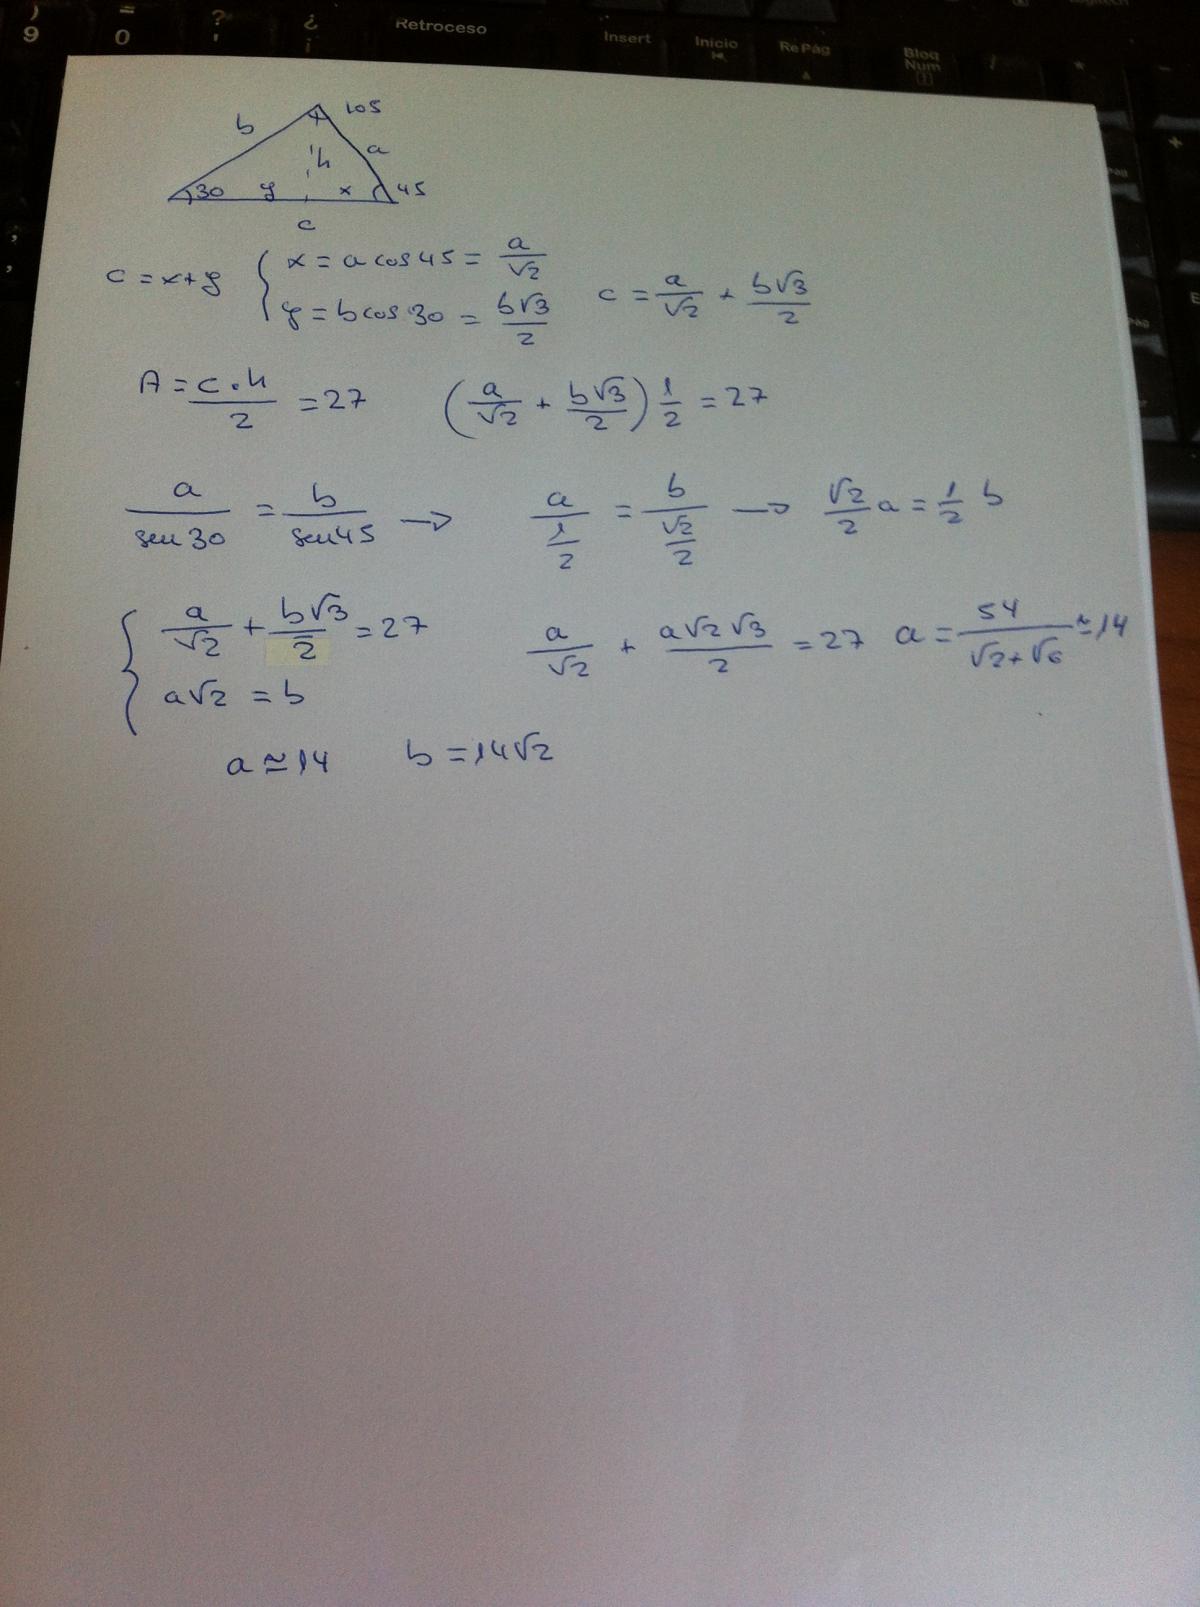 ) = ? ¿ Retroceso Insert Inicio Re Pág Bloq Num / *
9 0 ' ¡
b 105
h a
30 y x 45
c
c = x+y { x = a cos 45 = a/√2
y = b cos 30 = b√3/2 c = a/√2 + b√3/2
A = c·h/2 = 27 (a/√2 + b√3/2) 1/2 = 27
a/sen 30 = b/sen 45 → a/(1/2) = b/(√2/2) → √2/2 a = 1/2 b
{ a/√2 + b√3/2 = 27 a/√2 + a√2√3/2 = 27 a = 54/(√2+√6) ≃ 14
a√2 = b
a ≃ 14 b = 14√2